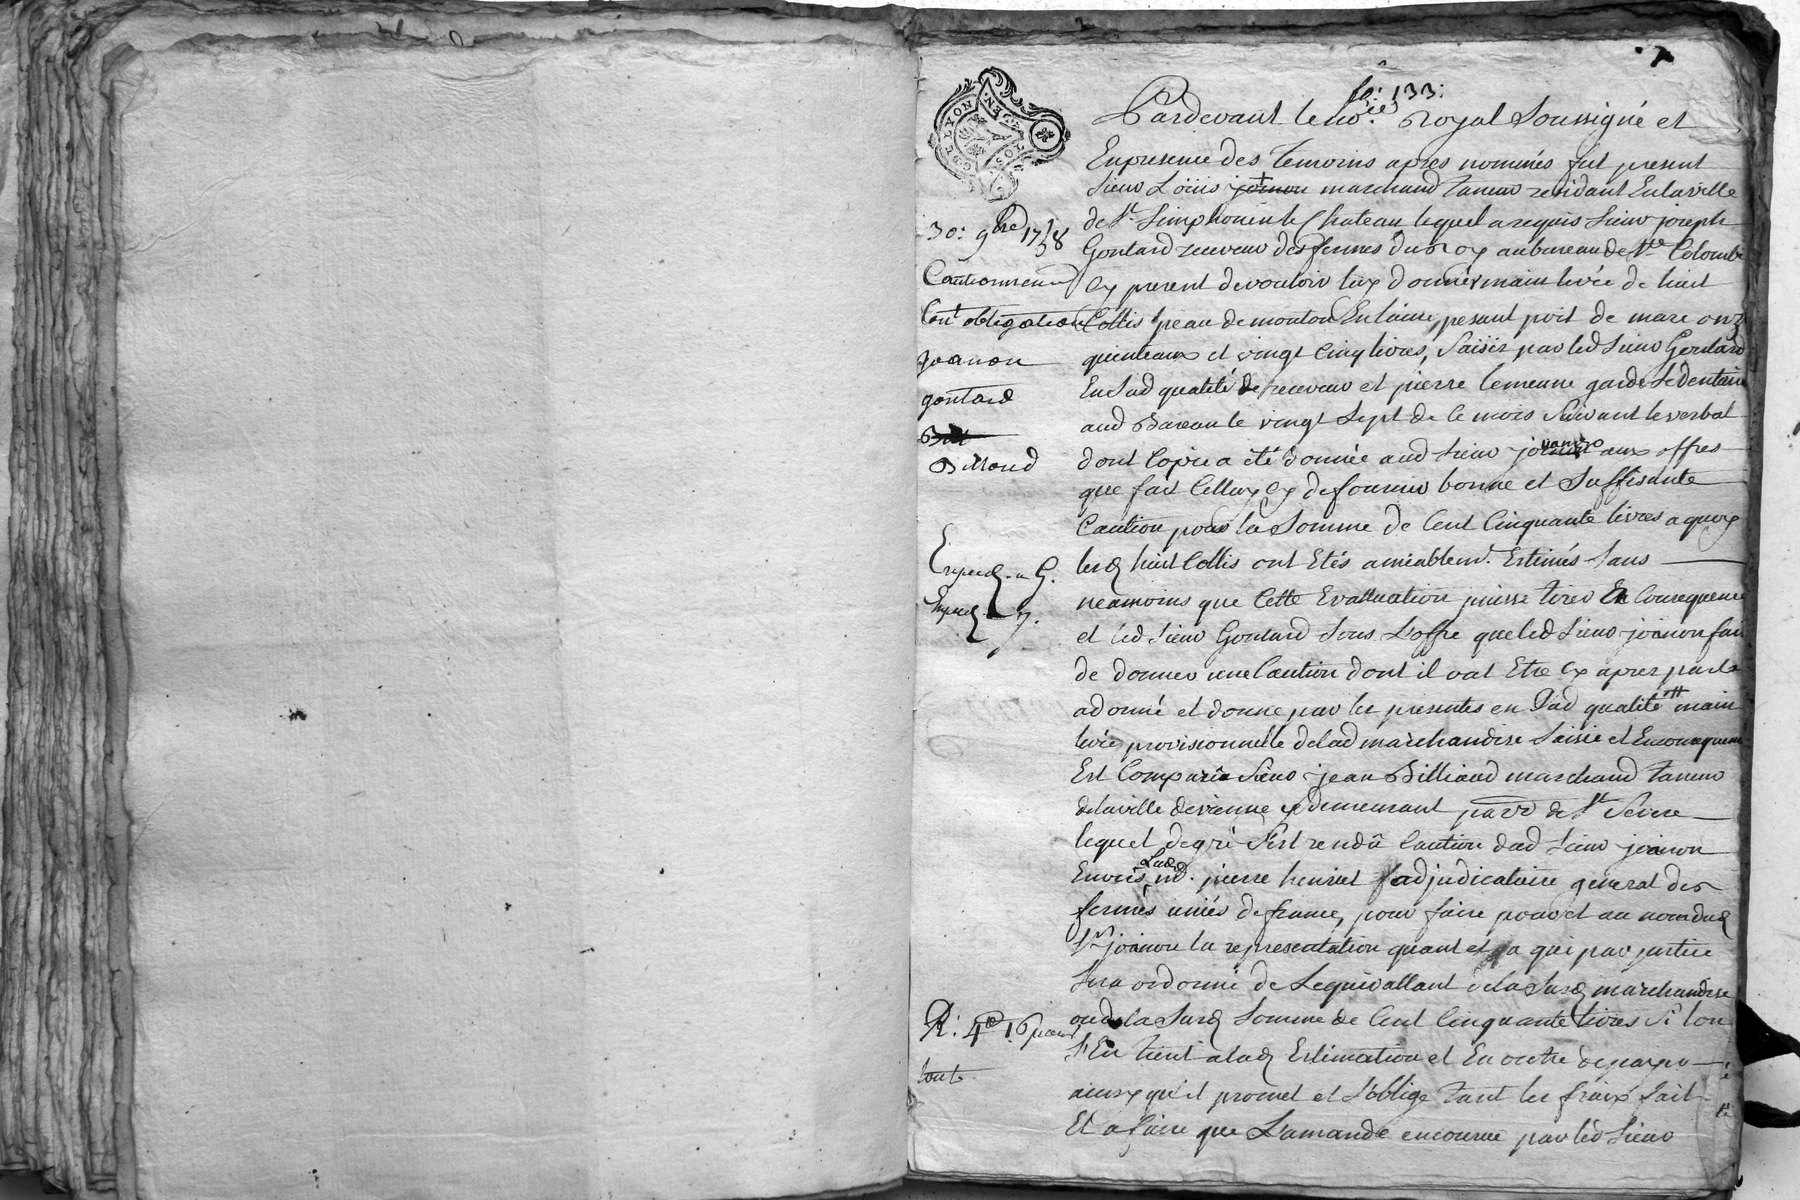 fo: 133:
GEN. DE LYON
Pardevant le no.re Royal Soussigné et
En presence des Temoins apres nommés fut present
Sieur Loüis joanon marchand Taneur residant En la ville
de St. Simphorien le Chateau lequel a requis Sieur joseph
30: 9bre 1738
Goutard receveur des fermes du Roy au bureau de Ste Colombe
Cautionnement
Cy present de vouloir luy donner main levée de huit
Cont obligation
Collis peau de mouton En laine, pesant poit de marc onze
joanon
quinteaux et vingt Cinq livres, Saisis par led Sieur Goutard
goutard
En Sad qualité de receveur et pierre lemeune garde Sedentaire
aud Bureau le vingt Sept de Ce mois Suivant le verbal
Billioud
dont Copie a été donnée aud Sieur joanon aux offres
que fait Celluy Cy de fournir bonne et Suffisante
Caution pour la Somme de Cent Cinquante livres a quoy
Exped. a G.
lesd huit Collis ont Etés amiablemt. Estimés Sans
Exped. J.
neamoins que Cette Evalluation puisse tirer En Consequence
et led Sieur Goutard Sous L'offre que led Sieur joanon fait
de donner une Caution dont il vat Etre Cy apres parlé
a donné et donne par les presentes en Sad qualité main
levée provisionnelle de lad marchandise Saisie et En consequence
Est Comparü Sieur jean Billioud marchand Taneur
de la ville de vienne y demeurant parr de St Severe
lequel de gré S'est rendû Caution dud Sieur joanon
Envers Lad. md. pierre henriet adjudicataire general des
fermes unies de france, pour faire pour et au nom dud
Sr joanon la representation quant et a qui par justice
Sera ordonné de Lequivallant de la Susd marchandise
R: 4tt 16 pour
ou de la Susd Somme de Cent Cinquante livres Si lon
tout
S'En tient a lad Estimation et En outre de payer
ainsy qu'il promet et S'oblige tant les fraix fait
Et a faire que L'amande encourue par led Sieur